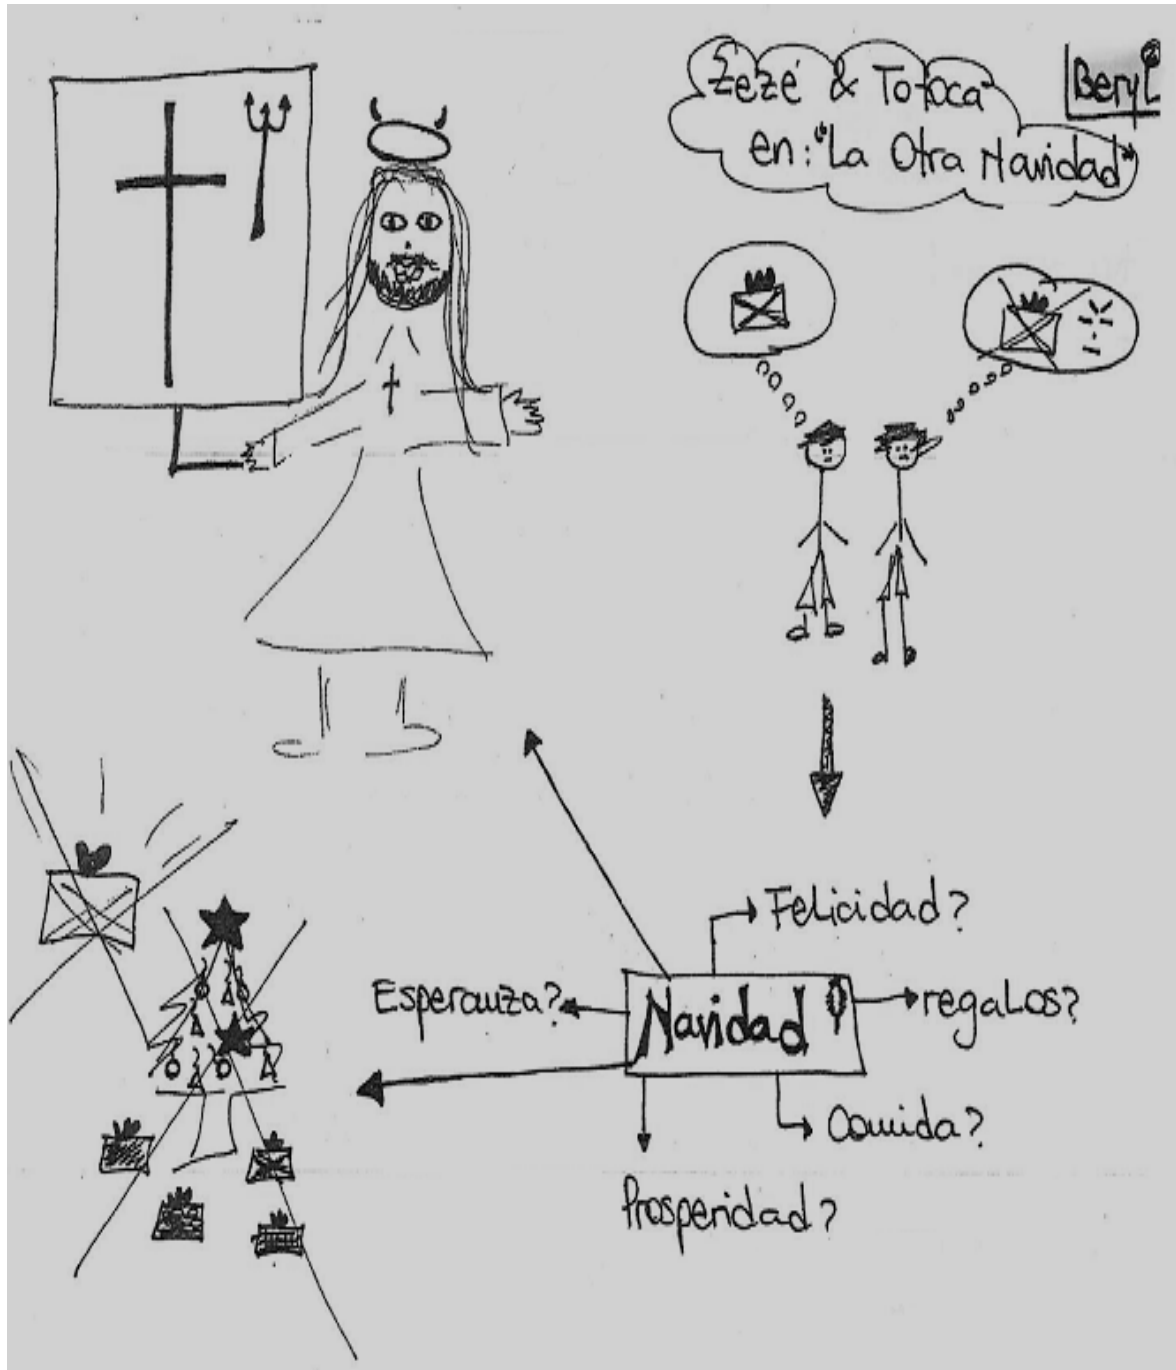 Zézé & Totoca
en: "La Otra Navidad"
Beryl
Felicidad?
Esperanza?
Navidad
regaLos?
Comida?
Prosperidad?